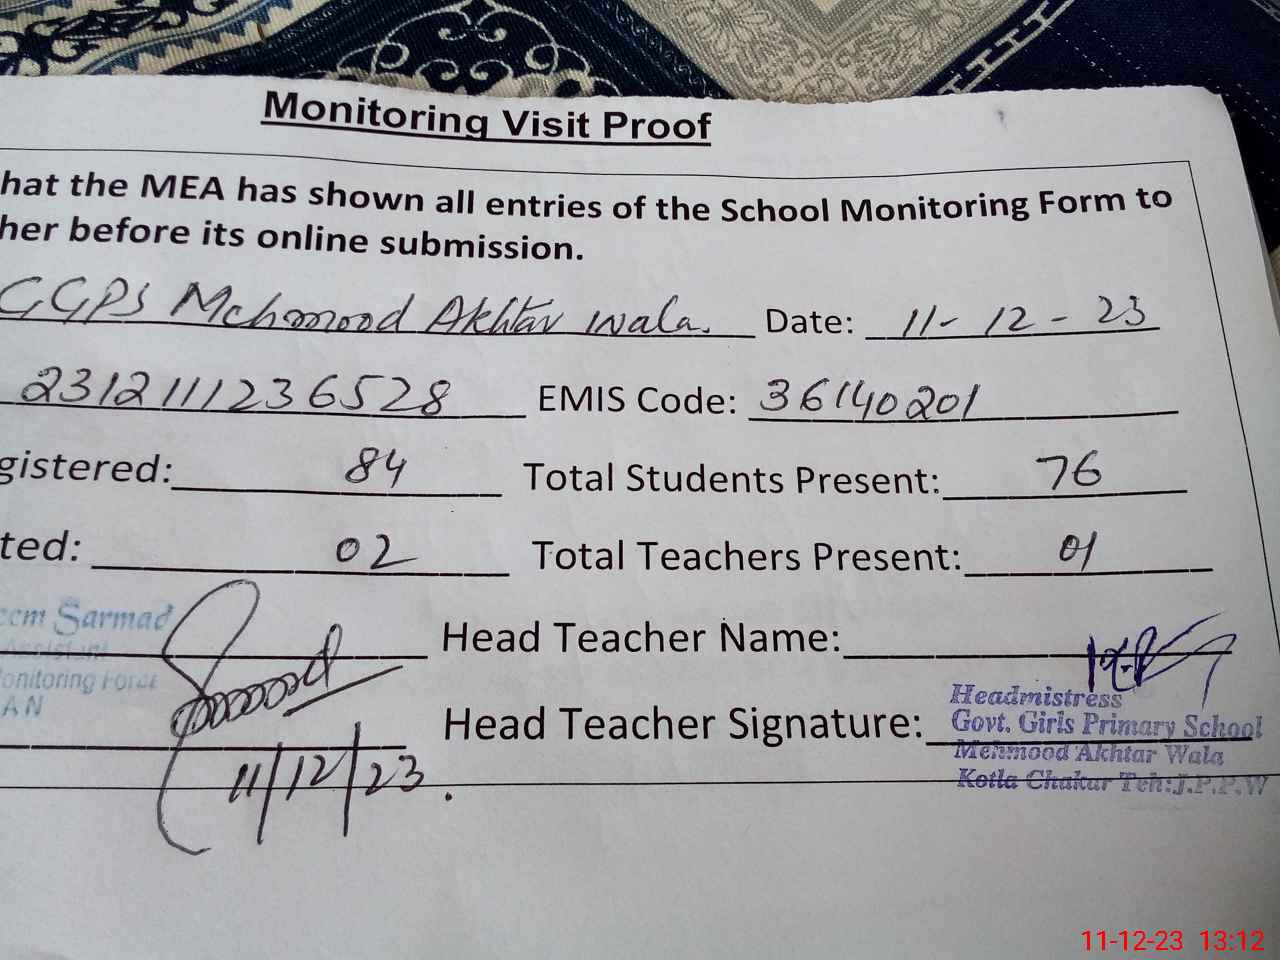 Monitoring Visit Proof
hat the MEA has shown all entries of the School Monitoring Form to
her before its online submission.
GGPS Mehmood Akhtar wala. Date: 11-12-23
2312111236528 EMIS Code: 36140201
gistered: 84 Total Students Present: 76
ted: 02 Total Teachers Present: 01
eem Sarmad
Assistant
onitoring Force
AN
Head Teacher Name:
Head Teacher Signature:
Headmistress
Govt. Girls Primary School
Mehmood Akhtar Wala
Kotla Chakar Teh: J.P.P.W
11/12/23.
11-12-23 13:12